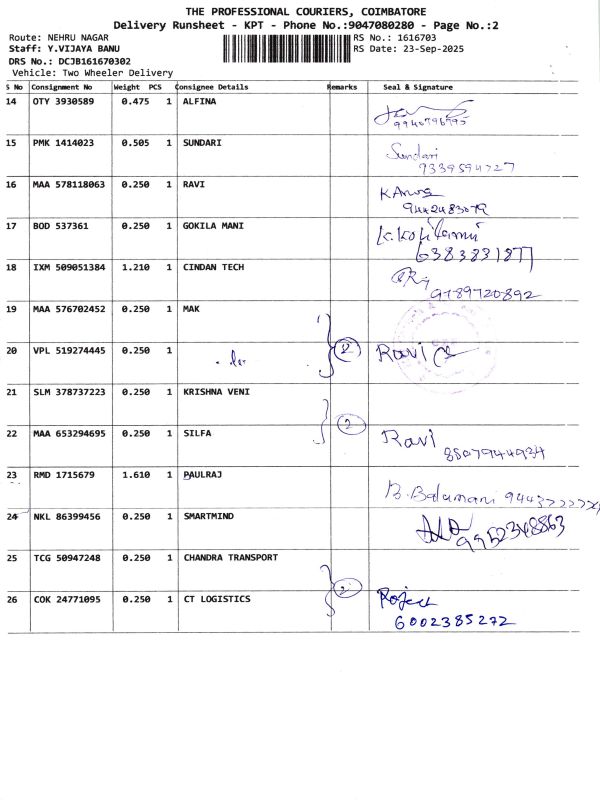 THE PROFESSIONAL COURIERS, COIMBATORE
Delivery Runsheet - KPT - Phone No.:9047080280 - Page No.:2
Route: NEHRU NAGAR
Staff: Y.VIJAYA BANU
DRS No.: DCJB161670302
Vehicle: Two Wheeler Delivery
RS No.: 1616703
RS Date: 23-Sep-2025
S No Consignment No Weight PCS Consignee Details Remarks Seal & Signature
14 OTY 3930589 0.475 1 ALFINA
9940796995
15 PMK 1414023 0.505 1 SUNDARI
Sundari
9339594727
16 MAA 578118063 0.250 1 RAVI
9442483079
17 BOD 537361 0.250 1 GOKILA MANI
6383831877
18 IXM 509051384 1.210 1 CINDAN TECH
9789720892
19 MAA 576702452 0.250 1 MAK
20 VPL 519274445 0.250 1 2 Ravi
21 SLM 378737223 0.250 1 KRISHNA VENI
2
22 MAA 653294695 0.250 1 SILFA Ravi
8807944934
23 RMD 1715679 1.610 1 PAULRAJ
B. Balamani
24 NKL 86399456 0.250 1 SMARTMIND
9952348863
25 TCG 50947248 0.250 1 CHANDRA TRANSPORT
2
26 COK 24771095 0.250 1 CT LOGISTICS
6002385272